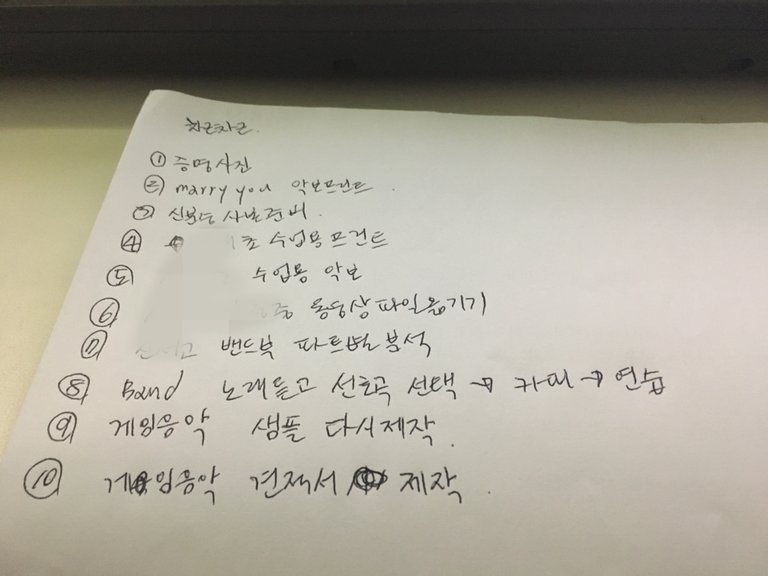 ① 증명사진
② marry you 악보프린트.
③ 신분증 사본준비.
④ 초 수업용프린트
⑤ 수업용 악보
⑥ 중 동영상파일옮기기
⑦ 고 밴드부 파트별분석
⑧ Band 노래듣고 선호곡 선택 → 카피 → 연습
⑨ 게임음악 샘플 다시제작.
⑩ 게임음악 견적서 제작.